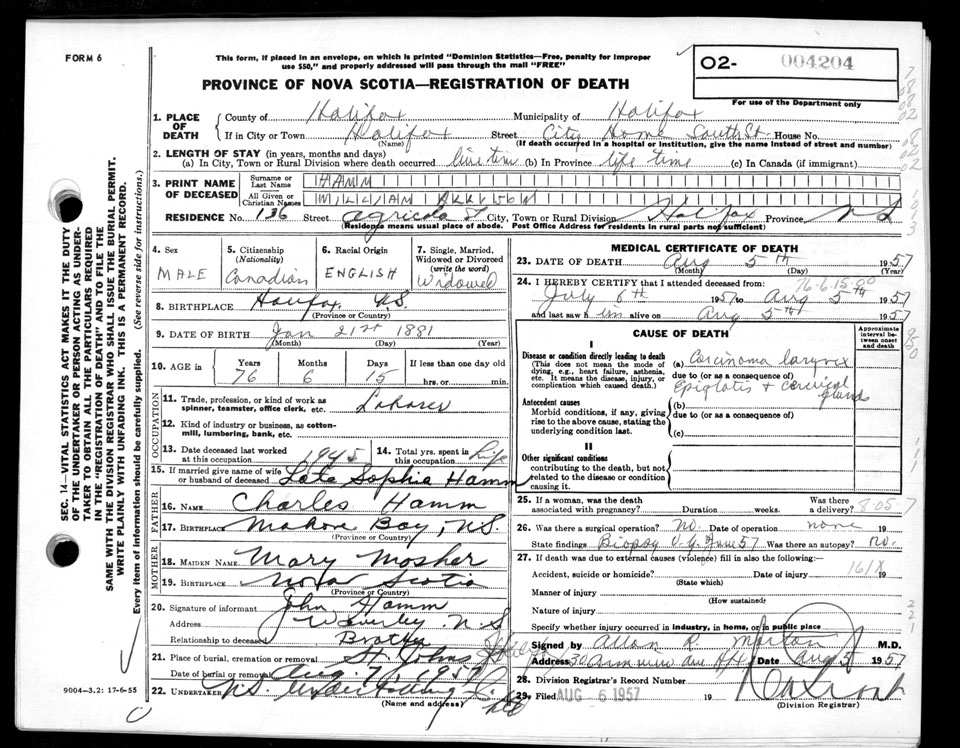 FORM 6
This form, if placed in an envelope, on which is printed "Dominion Statistics—Free, penalty for improper
use $50," and properly addressed will pass through the mail "FREE"
O2- 004204
For use of the Department only
PROVINCE OF NOVA SCOTIA—REGISTRATION OF DEATH
1. PLACE OF DEATH
County of Halifax Municipality of Halifax
If in City or Town Halifax Street City Home South St. House No.
(Name) (If death occurred in a hospital or institution, give the name instead of street and number)
2. LENGTH OF STAY (in years, months and days)
(a) In City, Town or Rural Division where death occurred life time (b) In Province life time (c) In Canada (if immigrant)
3. PRINT NAME OF DECEASED
Surname or Last Name HAMM
All Given or Christian Names WILLIAM
RESIDENCE No. 136 Street Agricola St City, Town or Rural Division Halifax Province N S
(Residence means usual place of abode. Post Office Address for residents in rural parts not sufficient)
4. Sex MALE
5. Citizenship (Nationality) Canadian
6. Racial Origin ENGLISH
7. Single, Married, Widowed or Divorced (write the word) Widowed
8. BIRTHPLACE Halifax, N.S.
(Province or Country)
9. DATE OF BIRTH Jan 21st 1881
(Month) (Day) (Year)
10. AGE in Years 76 Months 6 Days 15 If less than one day old hrs. or min.
OCCUPATION
11. Trade, profession, or kind of work as spinner, teamster, office clerk, etc. Laborer
12. Kind of industry or business, as cotton-mill, lumbering, bank, etc.
13. Date deceased last worked at this occupation 1945
14. Total yrs. spent in this occupation Life
15. If married give name of wife or husband of deceased Late Sophia Hamm
FATHER
16. Name Charles Hamm
17. Birthplace Mahone Bay, N.S.
(Province or Country)
MOTHER
18. MAIDEN NAME Mary Mosher
19. BIRTHPLACE Nova Scotia
(Province or Country)
20. Signature of informant John Hamm
Address Waverley N.S
Relationship to deceased Brother
21. Place of burial, cremation or removal St. Johns
Date of burial or removal Aug. 7, 1957
22. UNDERTAKER N.S. Undertaking
(Name and address)
MEDICAL CERTIFICATE OF DEATH
23. DATE OF DEATH Aug 5th 1957
(Month) (Day) (Year)
76-6-15-80
24. I HEREBY CERTIFY that I attended deceased from:
July 6th 1957 to Aug 5th 1957
and last saw him alive on Aug 5th 1957
CAUSE OF DEATH
Approximate interval between onset and death
I
Disease or condition directly leading to death
(This does not mean the mode of dying, e.g., heart failure, asthenia, etc. It means the disease, injury, or complication which caused death.)
(a) Carcinoma larynx
due to (or as a consequence of)
Epiglotis + cervical glands
Antecedent causes
Morbid conditions, if any, giving rise to the above cause, stating the underlying condition last.
(b)
due to (or as a consequence of)
(c)
II
Other significant conditions
contributing to the death, but not related to the disease or condition causing it.
25. If a woman, was the death associated with pregnancy? Duration weeks. Was there a delivery? 8-057
26. Was there a surgical operation? No. Date of operation none 19
State findings Biopsy V.G. June 57 Was there an autopsy? no.
27. If death was due to external causes (violence) fill in also the following:—
Accident, suicide or homicide? Date of injury 161X 19
(State which)
Manner of injury
(How sustained)
Nature of injury
Specify whether injury occurred in industry, in home, or in public place
Signed by Allan R. Morton M.D.
Address 30 Armview Ave Hfx Date Aug 5 1957
28. Division Registrar's Record Number
29. Filed AUG 6 1957 19
(Division Registrar)
SEC. 14—VITAL STATISTICS ACT MAKES IT THE DUTY
OF THE UNDERTAKER OR PERSON ACTING AS UNDER-
TAKER TO OBTAIN ALL THE PARTICULARS REQUIRED
IN THE "REGISTRATION OF DEATH" AND TO FILE THE
SAME WITH THE DIVISION REGISTRAR WHO SHALL ISSUE THE BURIAL PERMIT.
WRITE PLAINLY WITH UNFADING INK. THIS IS A PERMANENT RECORD.
Every item of information should be carefully supplied. (See reverse side for instructions.)
9004-3.2: 17-6-55